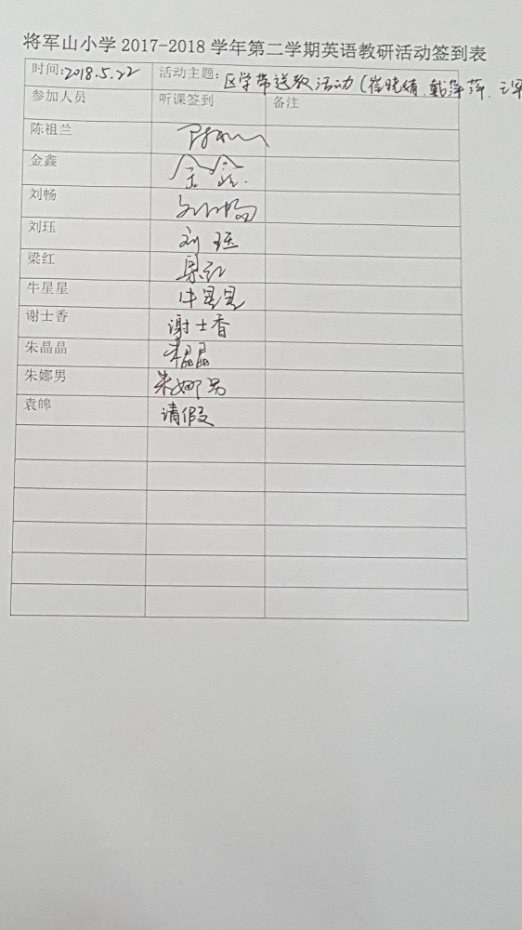 将军山小学2017-2018学年第二学期英语教研活动签到表
时间:2018.5.22 活动主题:区学带送教活动(崔晓婧.戴萍萍.
参加人员 听课签到 备注
陈祖兰
金鑫 金鑫
刘畅 刘畅
刘珏 刘珏
梁红 梁红
牛星星 牛星星
谢士香 谢士香
朱晶晶 朱晶晶
朱娜男 朱娜男
袁皞 请假